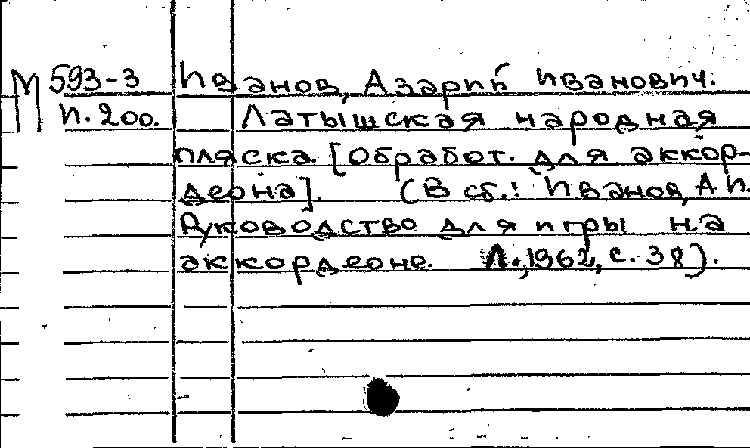 М 593-3 Иванов, Азарий Иванович.
И. 200. Латышская народная
пляска. [Обработ. для аккор-
деона]. (В сб.: Иванов, А И.
Руководство для игры на
аккордеоне. Л., 1962, с. 38).